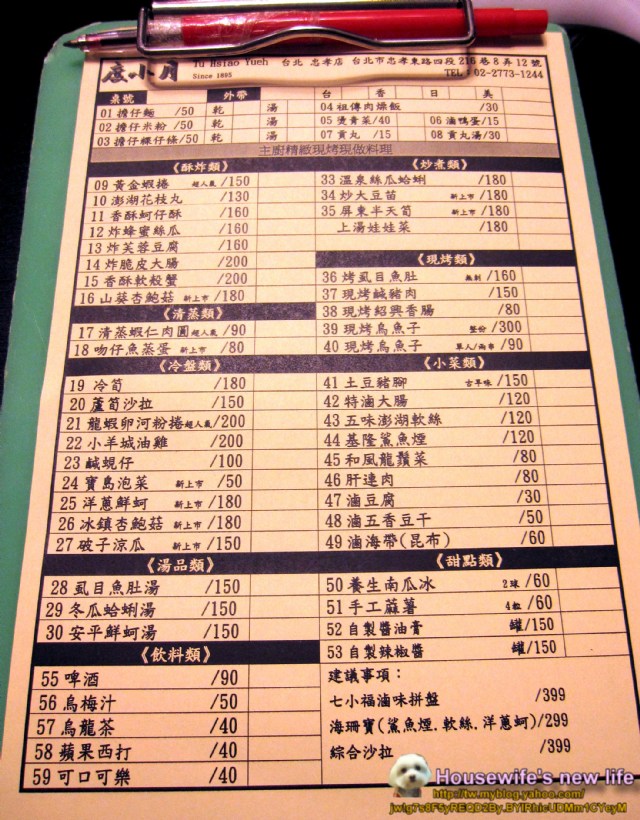 度小月 Tu Hsiao Yueh 台北 忠孝店 台北市忠孝東路四段 216 巷 8 弄 12 號
Since 1895 TEL:02-2773-1244
桌號 外帶 台 香 日 美
01 擔仔麵 /50 乾 湯 04 祖傳肉燥飯 /30
02 擔仔米粉 /50 乾 湯 05 燙青菜/40 06 滷鴨蛋/15
03 擔仔粿仔條/50 乾 湯 07 貢丸 /15 08 貢丸湯/30
主廚精緻現烤現做料理
《酥炸類》
09 黃金蝦捲 超人氣 /150
10 澎湖花枝丸 /130
11 香酥蚵仔酥 /160
12 炸蜂蜜絲瓜 /160
13 炸芙蓉豆腐 /160
14 炸脆皮大腸 /200
15 香酥軟殼蟹 /200
16 山葵杏鮑菇 新上市 /180
《清蒸類》
17 清蒸蝦仁肉圓 超人氣 /90
18 吻仔魚蒸蛋 新上市 /80
《冷盤類》
19 冷筍 /180
20 蘆筍沙拉 /150
21 龍蝦卵河粉捲 超人氣 /200
22 小羊城油雞 /200
23 鹹蜆仔 /100
24 寶島泡菜 新上市 /50
25 洋蔥鮮蚵 新上市 /180
26 冰鎮杏鮑菇 新上市 /180
27 破子涼瓜 新上市 /150
《湯品類》
28 虱目魚肚湯 /150
29 冬瓜蛤蜊湯 /150
30 安平鮮蚵湯 /150
《飲料類》
55 啤酒 /90
56 烏梅汁 /50
57 烏龍茶 /40
58 蘋果西打 /40
59 可口可樂 /40
《炒煮類》
33 溫泉絲瓜蛤蜊 /180
34 炒大豆苗 新上市 /180
35 屏東半天筍 新上市 /180
上湯娃娃菜 /180
《現烤類》
36 烤虱目魚肚 無刺 /160
37 現烤鹹豬肉 /150
38 現烤紹興香腸 /80
39 現烤烏魚子 整份 /300
40 現烤烏魚子 單人/兩串 /90
《小菜類》
41 土豆豬腳 古早味 /150
42 特滷大腸 /120
43 五味澎湖軟絲 /120
44 基隆鯊魚煙 /120
45 和風龍鬚菜 /80
46 肝連肉 /80
47 滷豆腐 /30
48 滷五香豆干 /50
49 滷海帶(昆布) /60
《甜點類》
50 養生南瓜冰 2球 /60
51 手工蔴薯 4粒 /60
52 自製醬油膏 罐/150
53 自製辣椒醬 罐/150
建議事項：
七小福滷味拼盤 /399
海珊寶(鯊魚煙.軟絲.洋蔥蚵)/299
綜合沙拉 /399
Housewife's new life
http://tw.myblog.yahoo.com/